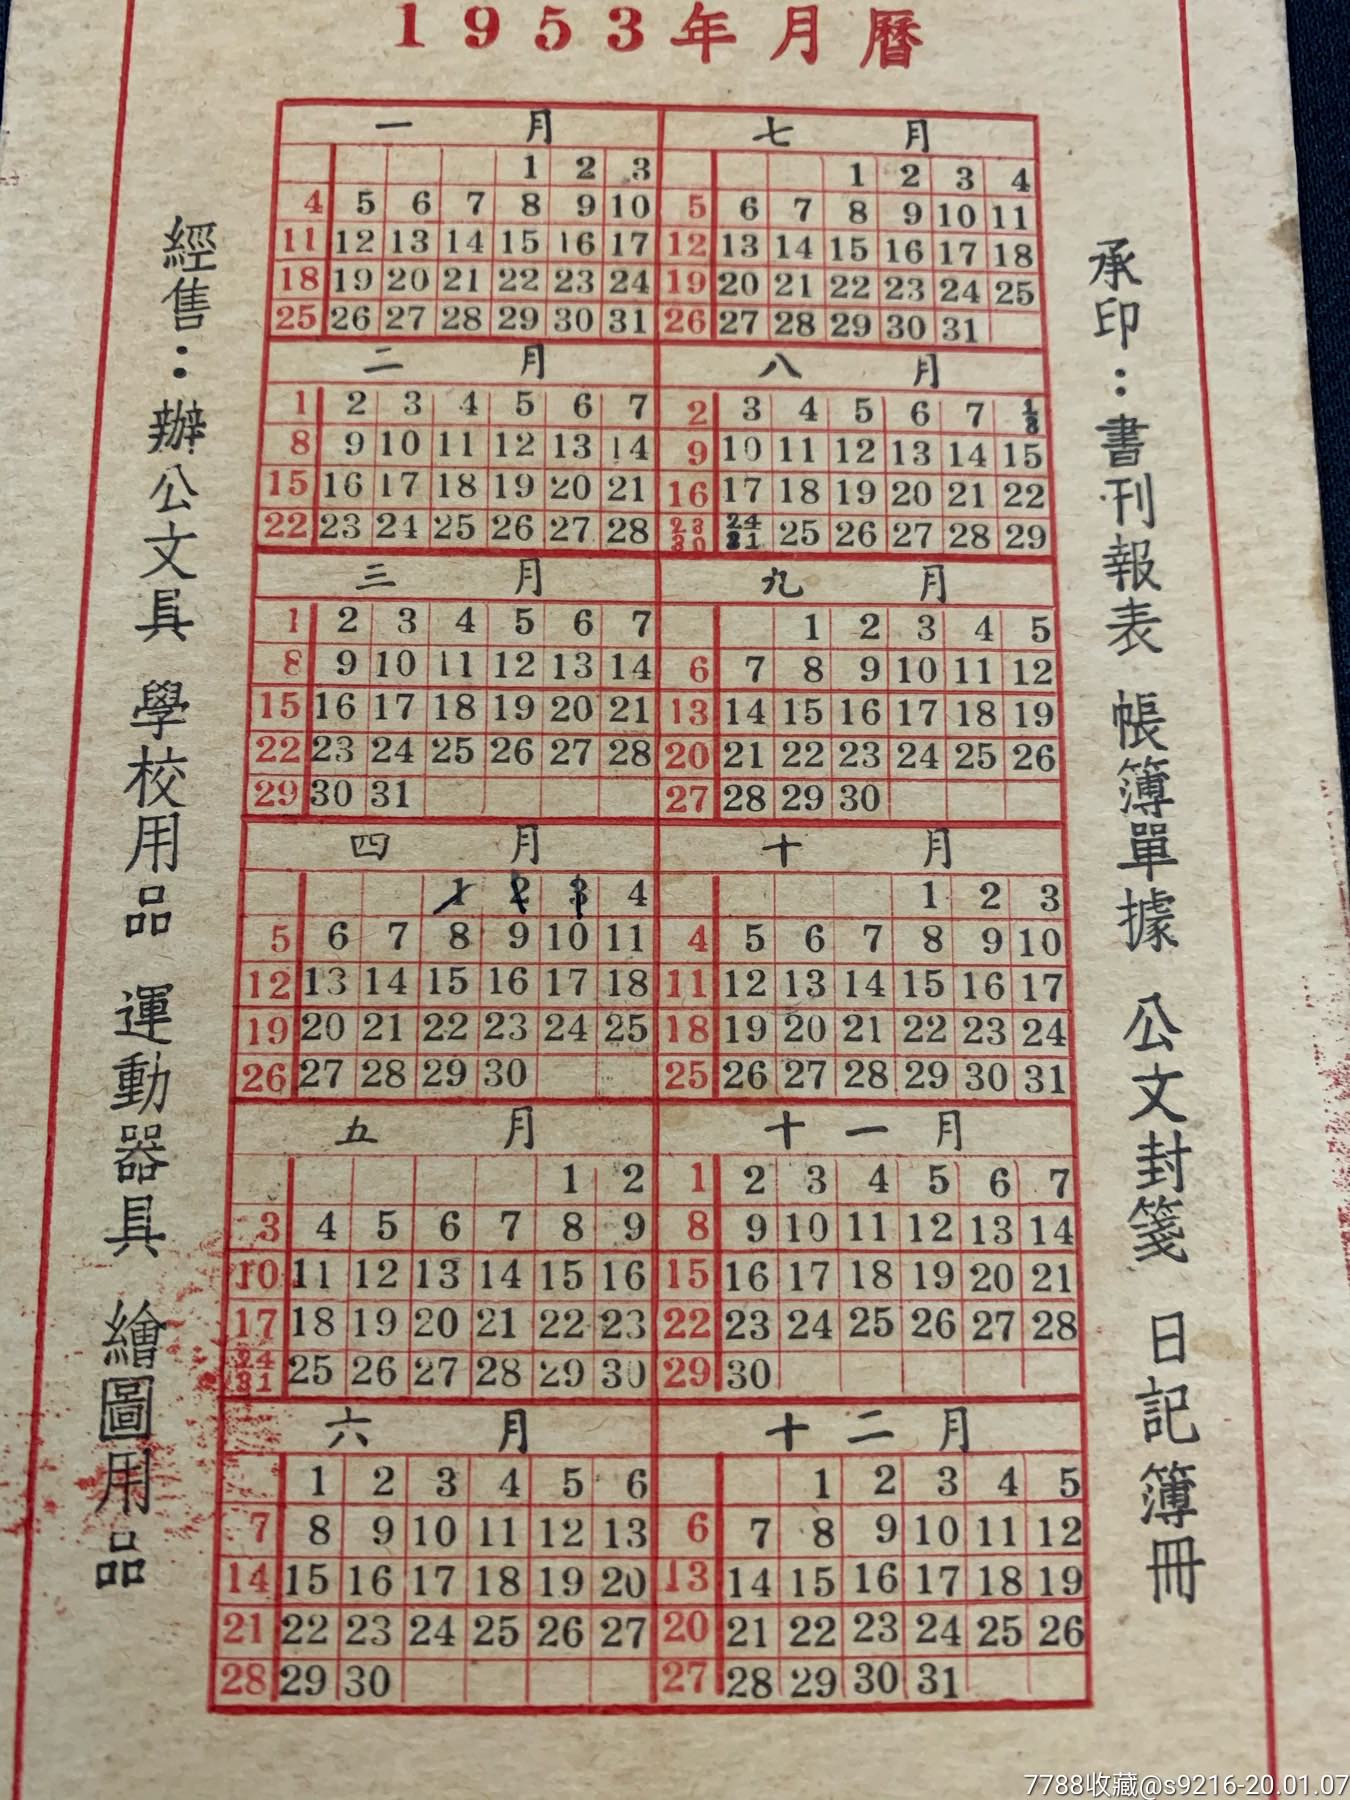 1953年月曆
一月
1 2 3
4 5 6 7 8 9 10
11 12 13 14 15 16 17
18 19 20 21 22 23 24
25 26 27 28 29 30 31
二月
1 2 3 4 5 6 7
8 9 10 11 12 13 14
15 16 17 18 19 20 21
22 23 24 25 26 27 28
三月
1 2 3 4 5 6 7
8 9 10 11 12 13 14
15 16 17 18 19 20 21
22 23 24 25 26 27 28
29 30 31
四月
1 2 3 4
5 6 7 8 9 10 11
12 13 14 15 16 17 18
19 20 21 22 23 24 25
26 27 28 29 30
五月
1 2
3 4 5 6 7 8 9
10 11 12 13 14 15 16
17 18 19 20 21 22 23
24/31 25 26 27 28 29 30
六月
1 2 3 4 5 6
7 8 9 10 11 12 13
14 15 16 17 18 19 20
21 22 23 24 25 26 27
28 29 30
七月
1 2 3 4
5 6 7 8 9 10 11
12 13 14 15 16 17 18
19 20 21 22 23 24 25
26 27 28 29 30 31
八月
2 3 4 5 6 7 1/8
9 10 11 12 13 14 15
16 17 18 19 20 21 22
23/30 24/31 25 26 27 28 29
九月
1 2 3 4 5
6 7 8 9 10 11 12
13 14 15 16 17 18 19
20 21 22 23 24 25 26
27 28 29 30
十月
1 2 3
4 5 6 7 8 9 10
11 12 13 14 15 16 17
18 19 20 21 22 23 24
25 26 27 28 29 30 31
十一月
1 2 3 4 5 6 7
8 9 10 11 12 13 14
15 16 17 18 19 20 21
22 23 24 25 26 27 28
29 30
十二月
1 2 3 4 5
6 7 8 9 10 11 12
13 14 15 16 17 18 19
20 21 22 23 24 25 26
27 28 29 30 31
承印：書刊報表 帳簿單據 公文封箋 日記簿冊
經售：辦公文具 學校用品 運動器具 繪圖用品
7788收藏@s9216-20.01.07